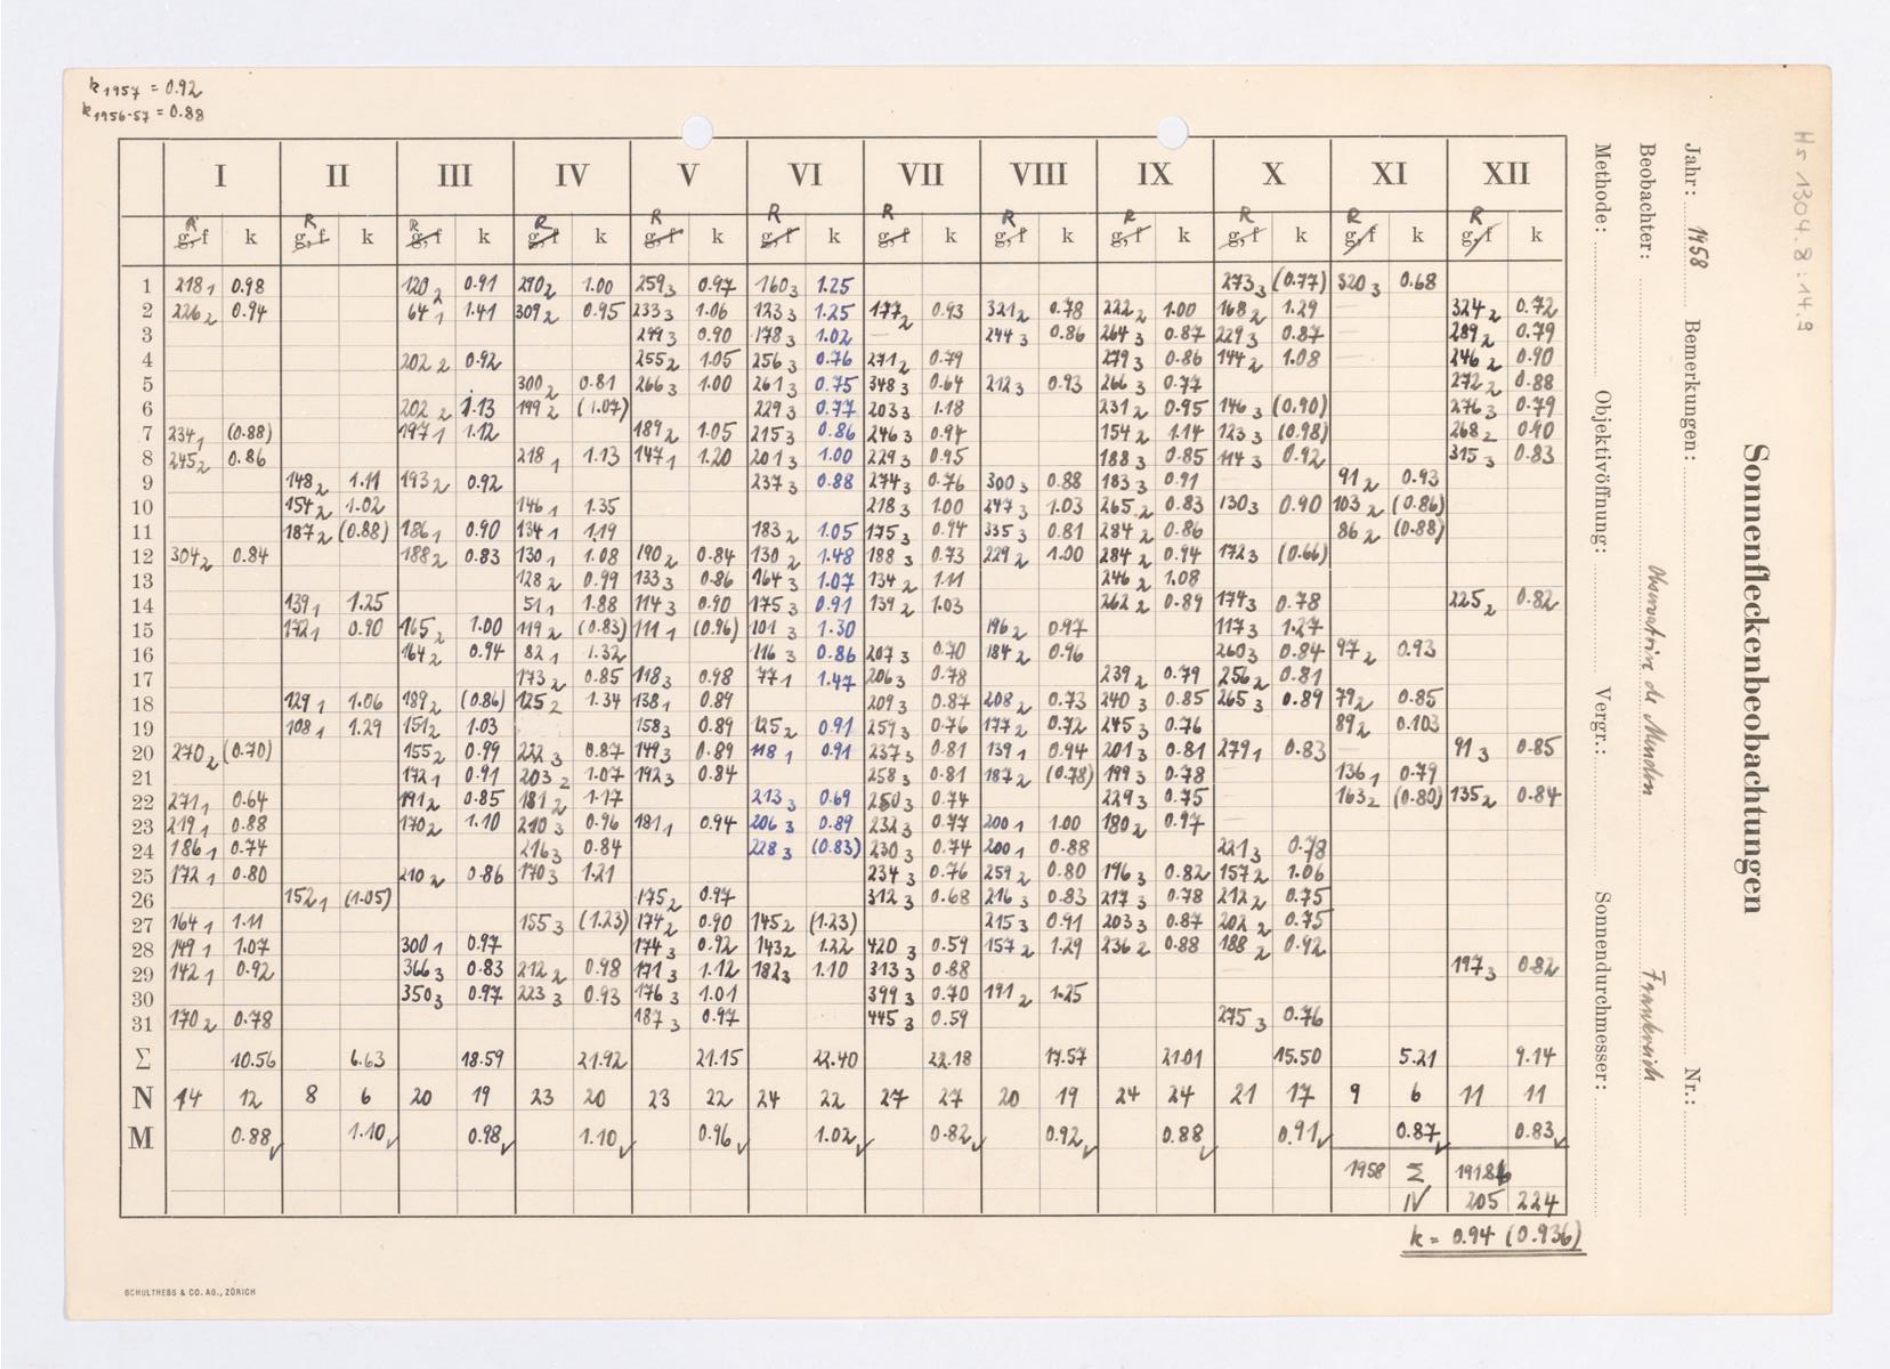 k 1957 = 0.92
k 1956-57 = 0.88
Hs 1304.8:14.9
Sonnenfleckenbeobachtungen
Jahr: 1958 Bemerkungen: Nr.:
Beobachter: Observatoire de Meudon Frankreich
Methode: Objektivöffnung: Vergr.: Sonnendurchmesser:
I II III IV V VI VII VIII IX X XI XII
R R R R R R R R R R R R
g, f k g, f k g, f k g, f k g, f k g, f k g, f k g, f k g, f k g, f k g, f k g, f k
1 218 1 0.98 120 2 0.91 290 2 1.00 259 3 0.97 160 3 1.25 273 3 (0.77) 320 3 0.68
2 226 2 0.94 64 1 1.41 309 2 0.95 233 3 1.06 123 3 1.25 177 2 0.93 321 2 0.78 222 2 1.00 168 2 1.29 324 2 0.72
3 299 3 0.90 178 3 1.02 244 3 0.86 264 3 0.87 229 3 0.87 289 2 0.79
4 202 2 0.92 255 2 1.05 256 3 0.76 271 2 0.79 279 3 0.86 144 2 1.08 246 2 0.90
5 300 2 0.81 266 3 1.00 261 3 0.75 348 3 0.64 212 3 0.93 266 3 0.77 272 2 0.88
6 202 2 1.13 199 2 (1.07) 229 3 0.77 203 3 1.18 231 2 0.95 146 3 (0.90) 276 3 0.79
7 234 1 (0.88) 197 1 1.12 189 2 1.05 215 3 0.86 246 3 0.94 154 2 1.14 123 3 (0.98) 268 2 0.90
8 245 2 0.86 218 1 1.13 147 1 1.20 201 3 1.00 229 3 0.95 188 3 0.85 114 3 0.92 315 3 0.83
9 148 2 1.11 193 2 0.92 237 3 0.88 274 3 0.76 300 3 0.88 183 3 0.91 91 2 0.93
10 154 2 1.02 146 1 1.35 218 3 1.00 247 3 1.03 265 2 0.83 130 3 0.90 103 2 (0.86)
11 187 2 (0.88) 186 1 0.90 134 1 1.19 183 2 1.05 175 3 0.94 335 3 0.81 284 2 0.86 86 2 (0.88)
12 304 2 0.84 188 2 0.83 130 1 1.08 190 2 0.84 130 2 1.48 188 3 0.73 229 2 1.00 284 2 0.94 172 3 (0.66)
13 128 2 0.99 133 3 0.86 164 3 1.07 134 2 1.11 246 2 1.08
14 139 1 1.25 51 1 1.88 114 3 0.90 175 3 0.91 139 2 1.03 262 2 0.89 174 3 0.78 225 2 0.82
15 172 1 0.90 165 2 1.00 119 2 (0.83) 111 1 (0.96) 101 3 1.30 196 2 0.97 117 3 1.27
16 164 2 0.94 82 1 1.32 116 3 0.86 207 3 0.70 184 2 0.96 260 3 0.84 97 2 0.93
17 173 2 0.85 118 3 0.98 77 1 1.47 206 3 0.78 239 2 0.79 256 2 0.81
18 129 1 1.06 189 2 (0.86) 125 2 1.34 138 1 0.89 209 3 0.87 208 2 0.73 240 3 0.85 265 3 0.89 79 2 0.85
19 108 1 1.29 151 2 1.03 158 3 0.89 125 2 0.91 259 3 0.76 177 2 0.72 245 3 0.76 89 2 0.103
20 270 2 (0.70) 155 2 0.99 222 3 0.87 149 3 0.89 118 1 0.91 237 3 0.81 139 1 0.94 201 3 0.81 279 1 0.83 91 3 0.85
21 172 1 0.91 203 2 1.07 192 3 0.84 258 3 0.81 187 2 (0.78) 199 3 0.78 136 1 0.79
22 271 1 0.64 191 2 0.85 181 2 1.17 213 3 0.69 250 3 0.74 229 3 0.75 163 2 (0.80) 135 2 0.84
23 219 1 0.88 170 2 1.10 210 3 0.96 181 1 0.94 206 3 0.89 232 3 0.77 200 1 1.00 180 2 0.97
24 186 1 0.74 216 3 0.84 228 3 (0.83) 230 3 0.74 200 1 0.88 221 3 0.78
25 172 1 0.80 210 2 0.86 170 3 1.21 234 3 0.76 259 2 0.80 196 3 0.82 157 2 1.06
26 152 1 (1.05) 175 2 0.97 312 3 0.68 216 3 0.83 217 3 0.78 212 2 0.75
27 164 1 1.11 155 3 (1.23) 174 2 0.90 145 2 (1.23) 215 3 0.91 203 3 0.87 202 2 0.75
28 149 1 1.07 300 1 0.97 174 3 0.92 143 2 1.22 420 3 0.59 157 2 1.29 236 2 0.88 188 2 0.92
29 142 1 0.92 366 3 0.83 212 2 0.98 171 3 1.12 182 3 1.10 313 3 0.88 197 3 0.82
30 350 3 0.97 223 3 0.93 176 3 1.01 399 3 0.70 191 2 1.25
31 170 2 0.78 187 3 0.97 445 3 0.59 275 3 0.76
Σ 10.56 6.63 18.59 21.92 21.15 22.40 22.18 17.57 21.01 15.50 5.21 9.14
N 14 12 8 6 20 19 23 20 23 22 24 22 27 27 20 19 24 24 21 17 9 6 11 11
M 0.88 1.10 0.98 1.10 0.96 1.02 0.82 0.92 0.88 0.91 0.87 0.83
1958 Σ
N 205 224
k = 0.94 (0.936)
SCHULTHESS & CO. AG., ZÜRICH